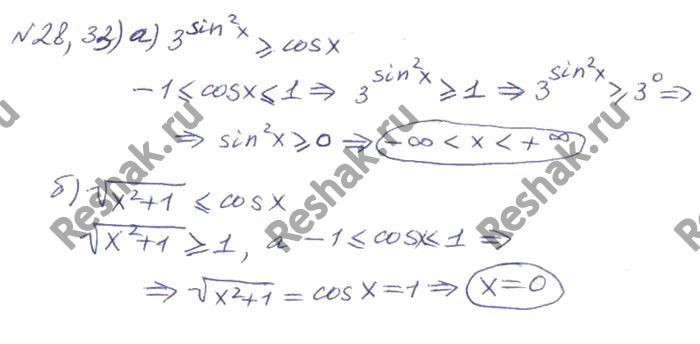 №28,33) а) 3^sin²x ≥ cosx
-1 ≤ cosx ≤ 1 ⇒ 3^sin²x ≥ 1 ⇒ 3^sin²x ≥ 3⁰ ⇒
⇒ sin²x ≥ 0 ⇒ -∞ < x < +∞
б) √(x²+1) ≤ cosx
√(x²+1) ≥ 1, а -1 ≤ cosx ≤ 1 ⇒
⇒ √(x²+1) = cosx = 1 ⇒ x=0
Reshak.ru
Reshak.ru
Reshak.ru